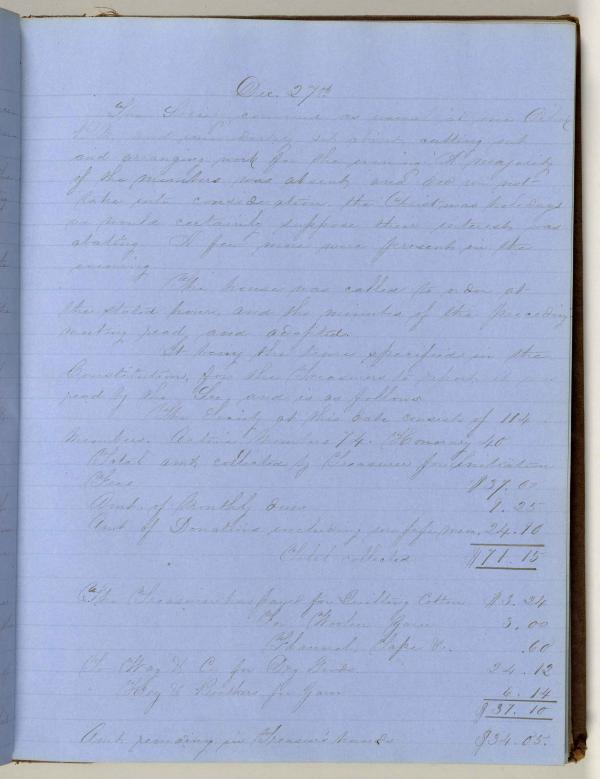 Dec. 27th
The Society convened as usual at one Oclock
P.M. and immediately set about cutting out
and arranging work for the evening. A majority
of the members was absent, and did we not
take into consideration the Christmas holidays
we would certainly suppose their interest was
abating. A few more were present in the
evening.
The house was called to order at
the stated hour, and the minutes of the preceding
meeting read and adopted.
It being the time specified in the
Constitution, for the Treasurers to report it was
read by the Sec. and is as follows
The Society at this date consists of 114
members. Active Members 74. Honorary 40
Total amt. collected by Treasurer for Initiation
Fees $37.00
Amt. of Monthly dues
Amt. of Donations including 24.10
Total collected $71.15
The Treasurer has payed for Quilting Cotton $3.24
For Woolen Yarn 3.00
Flannel, Tape &c. .60
To & Co. for Dry Goods
& for Yarn 4.14
Amt. remaining in Treasurer's hands $34.05.